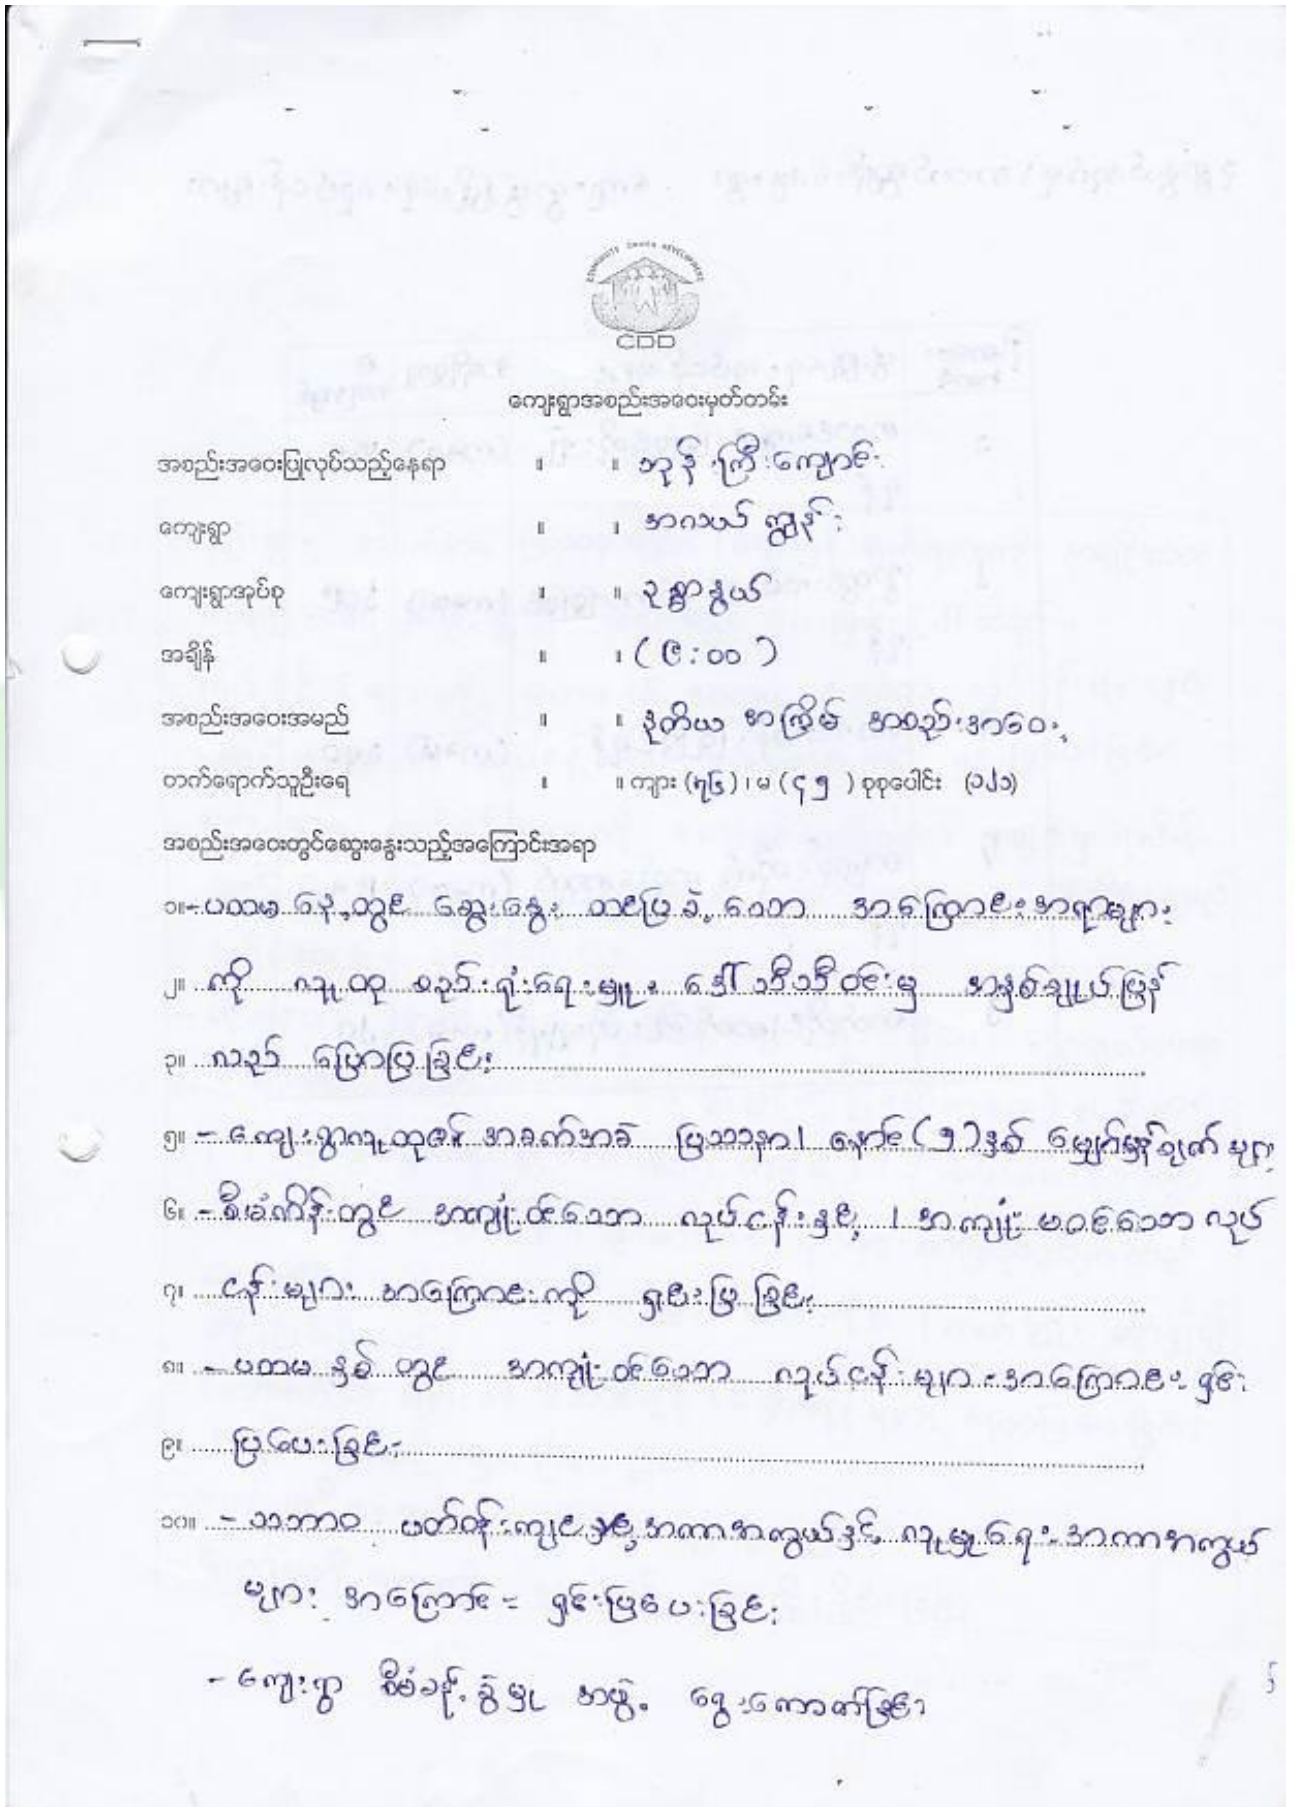 COMMUNITY DRIVEN DEVELOPMENT
CDD
ကျေးရွာအစည်းအဝေးမှတ်တမ်း
အစည်းအဝေးပြုလုပ်သည့်နေရာ ။ ။ ဘုန်းကြီးကျောင်း
ကျေးရွာ ။ ။ အလယ်ကျွန်း
ကျေးရွာအုပ်စု ။ ။
အချိန် ။ ။ (၉:၀၀)
အစည်းအဝေးအမည် ။ ။ ဒုတိယ အကြိမ် အစည်းအဝေး
တက်ရောက်သူဦးရေ ။ ။ ကျား (၇၆)၊ မ (၄၅) စုစုပေါင်း (၁၂၁)
အစည်းအဝေးတွင်ဆွေးနွေးသည့်အကြောင်းအရာ
၁။ - ပထမ နေ့တွင် ဆွေးနွေး တင်ပြခဲ့သော အကြောင်းအရာများ
၂။ ကို လူထု စည်းရုံးရေးမှူး ဒေါ်သီသီဝင်းမှ အနှစ်ချုပ်ပြန်
၃။ လည် ပြောပြခြင်း
၅။ - ကျေးရွာလူထု၏ အခက်အခဲ ပြဿနာ၊ နောင် (၅) နှစ် မျှော်မှန်းချက် များ
၆။ - စီမံကိန်းတွင် အကျုံးဝင်သော လုပ်ငန်းနှင့် ၊ အကျုံး မဝင်သော လုပ်
၇။ ငန်းများ အကြောင်းကို ရှင်းပြခြင်း
၈။ - ပထမ နှစ် တွင် အကျုံးဝင်သော လုပ်ငန်းများ အကြောင်း ရှင်း
၉။ ပြပေးခြင်း
၁၀။ - သဘာဝ ပတ်ဝန်းကျင် အကာအကွယ်နှင့် လူမှုရေး အကာအကွယ်
များ အကြောင်း ရှင်းပြပေးခြင်း
- ကျေးရွာ စီမံခန့်ခွဲမှု အဖွဲ့ ရွေးကောက်ခြင်း